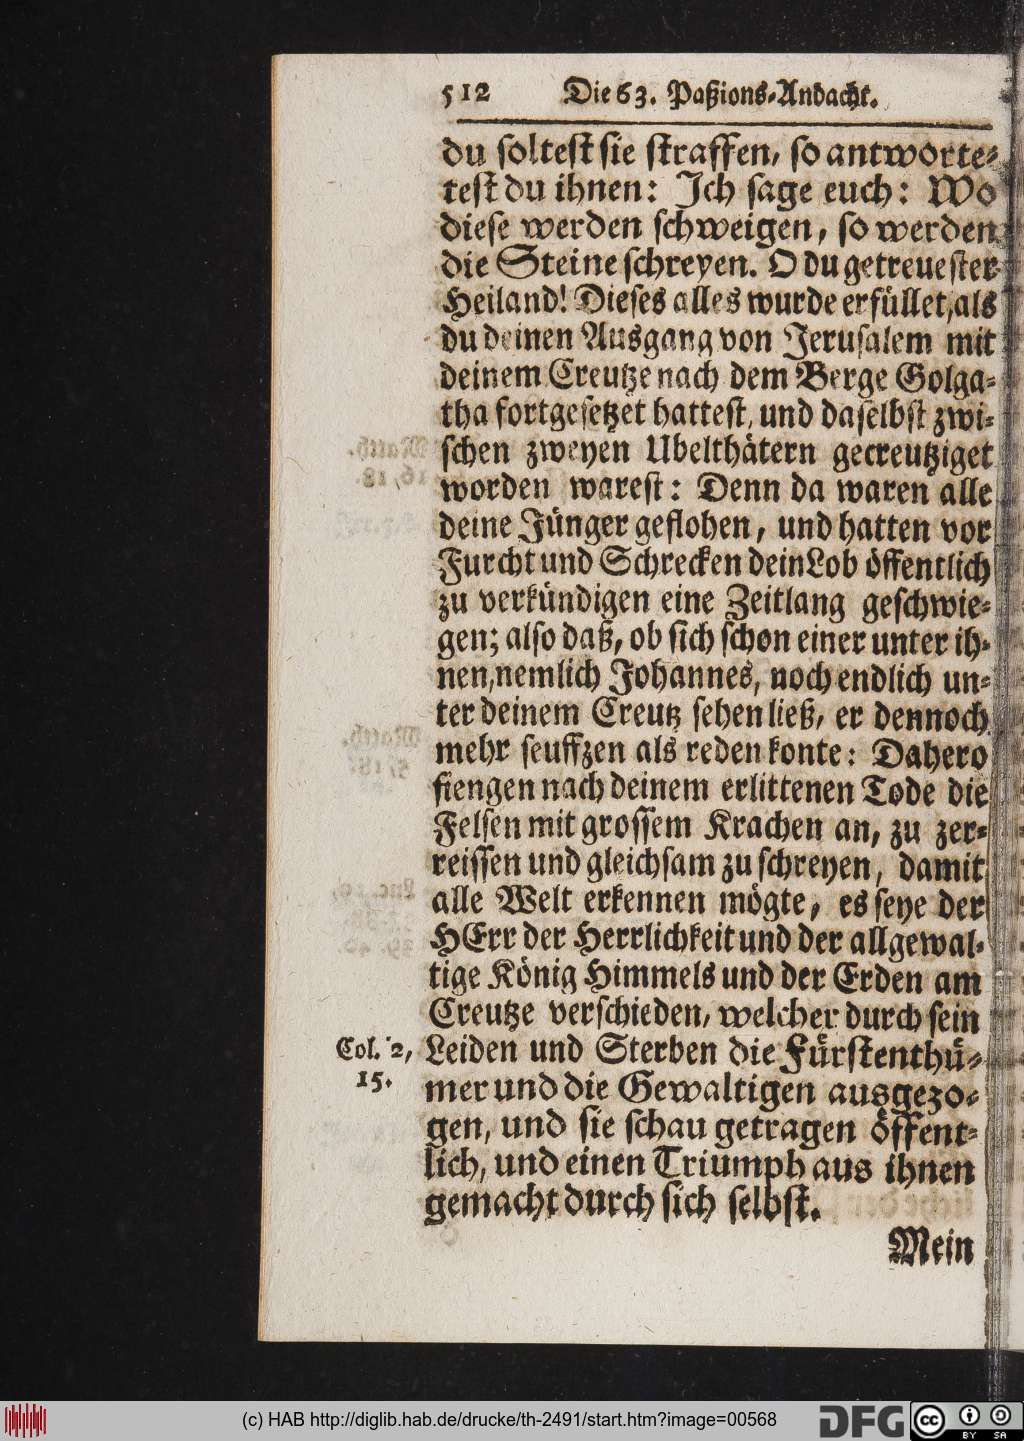 512 Die 63. Paßions-Andacht.
du soltest sie straffen, so antworte-
test du ihnen: Ich sage euch: Wo
diese werden schweigen, so werden
die Steine schreyen. O du getreuester
Heiland! Dieses alles wurde erfüllet, als
du deinen Ausgang von Jerusalem mit
deinem Creutze nach dem Berge Golga-
tha fortgesetzet hattest, und daselbst zwi-
schen zweyen Ubelthätern gecreutziget
worden warest: Denn da waren alle
deine Jünger geflohen, und hatten vor
Furcht und Schrecken dein Lob öffentlich
zu verkündigen eine Zeitlang geschwie-
gen; also daß, ob sich schon einer unter ih-
nen, nemlich Johannes, noch endlich un-
ter deinem Creutz sehen ließ, er dennoch
mehr seuffzen als reden konte: Dahero
fiengen nach deinem erlittenen Tode die
Felsen mit grossem Krachen an, zu zer-
reissen und gleichsam zu schreyen, damit
alle Welt erkennen mögte, es seye der
HErr der Herrlichkeit und der allgewal-
tige König Himmels und der Erden am
Creutze verschieden, welcher durch sein
Col. 2, Leiden und Sterben die Fürstenthü-
15. mer und die Gewaltigen ausgezo-
gen, und sie schau getragen öffent-
lich, und einen Triumph aus ihnen
gemacht durch sich selbst.
Mein
(c) HAB http://diglib.hab.de/drucke/th-2491/start.htm?image=00568
DFG cc BY SA